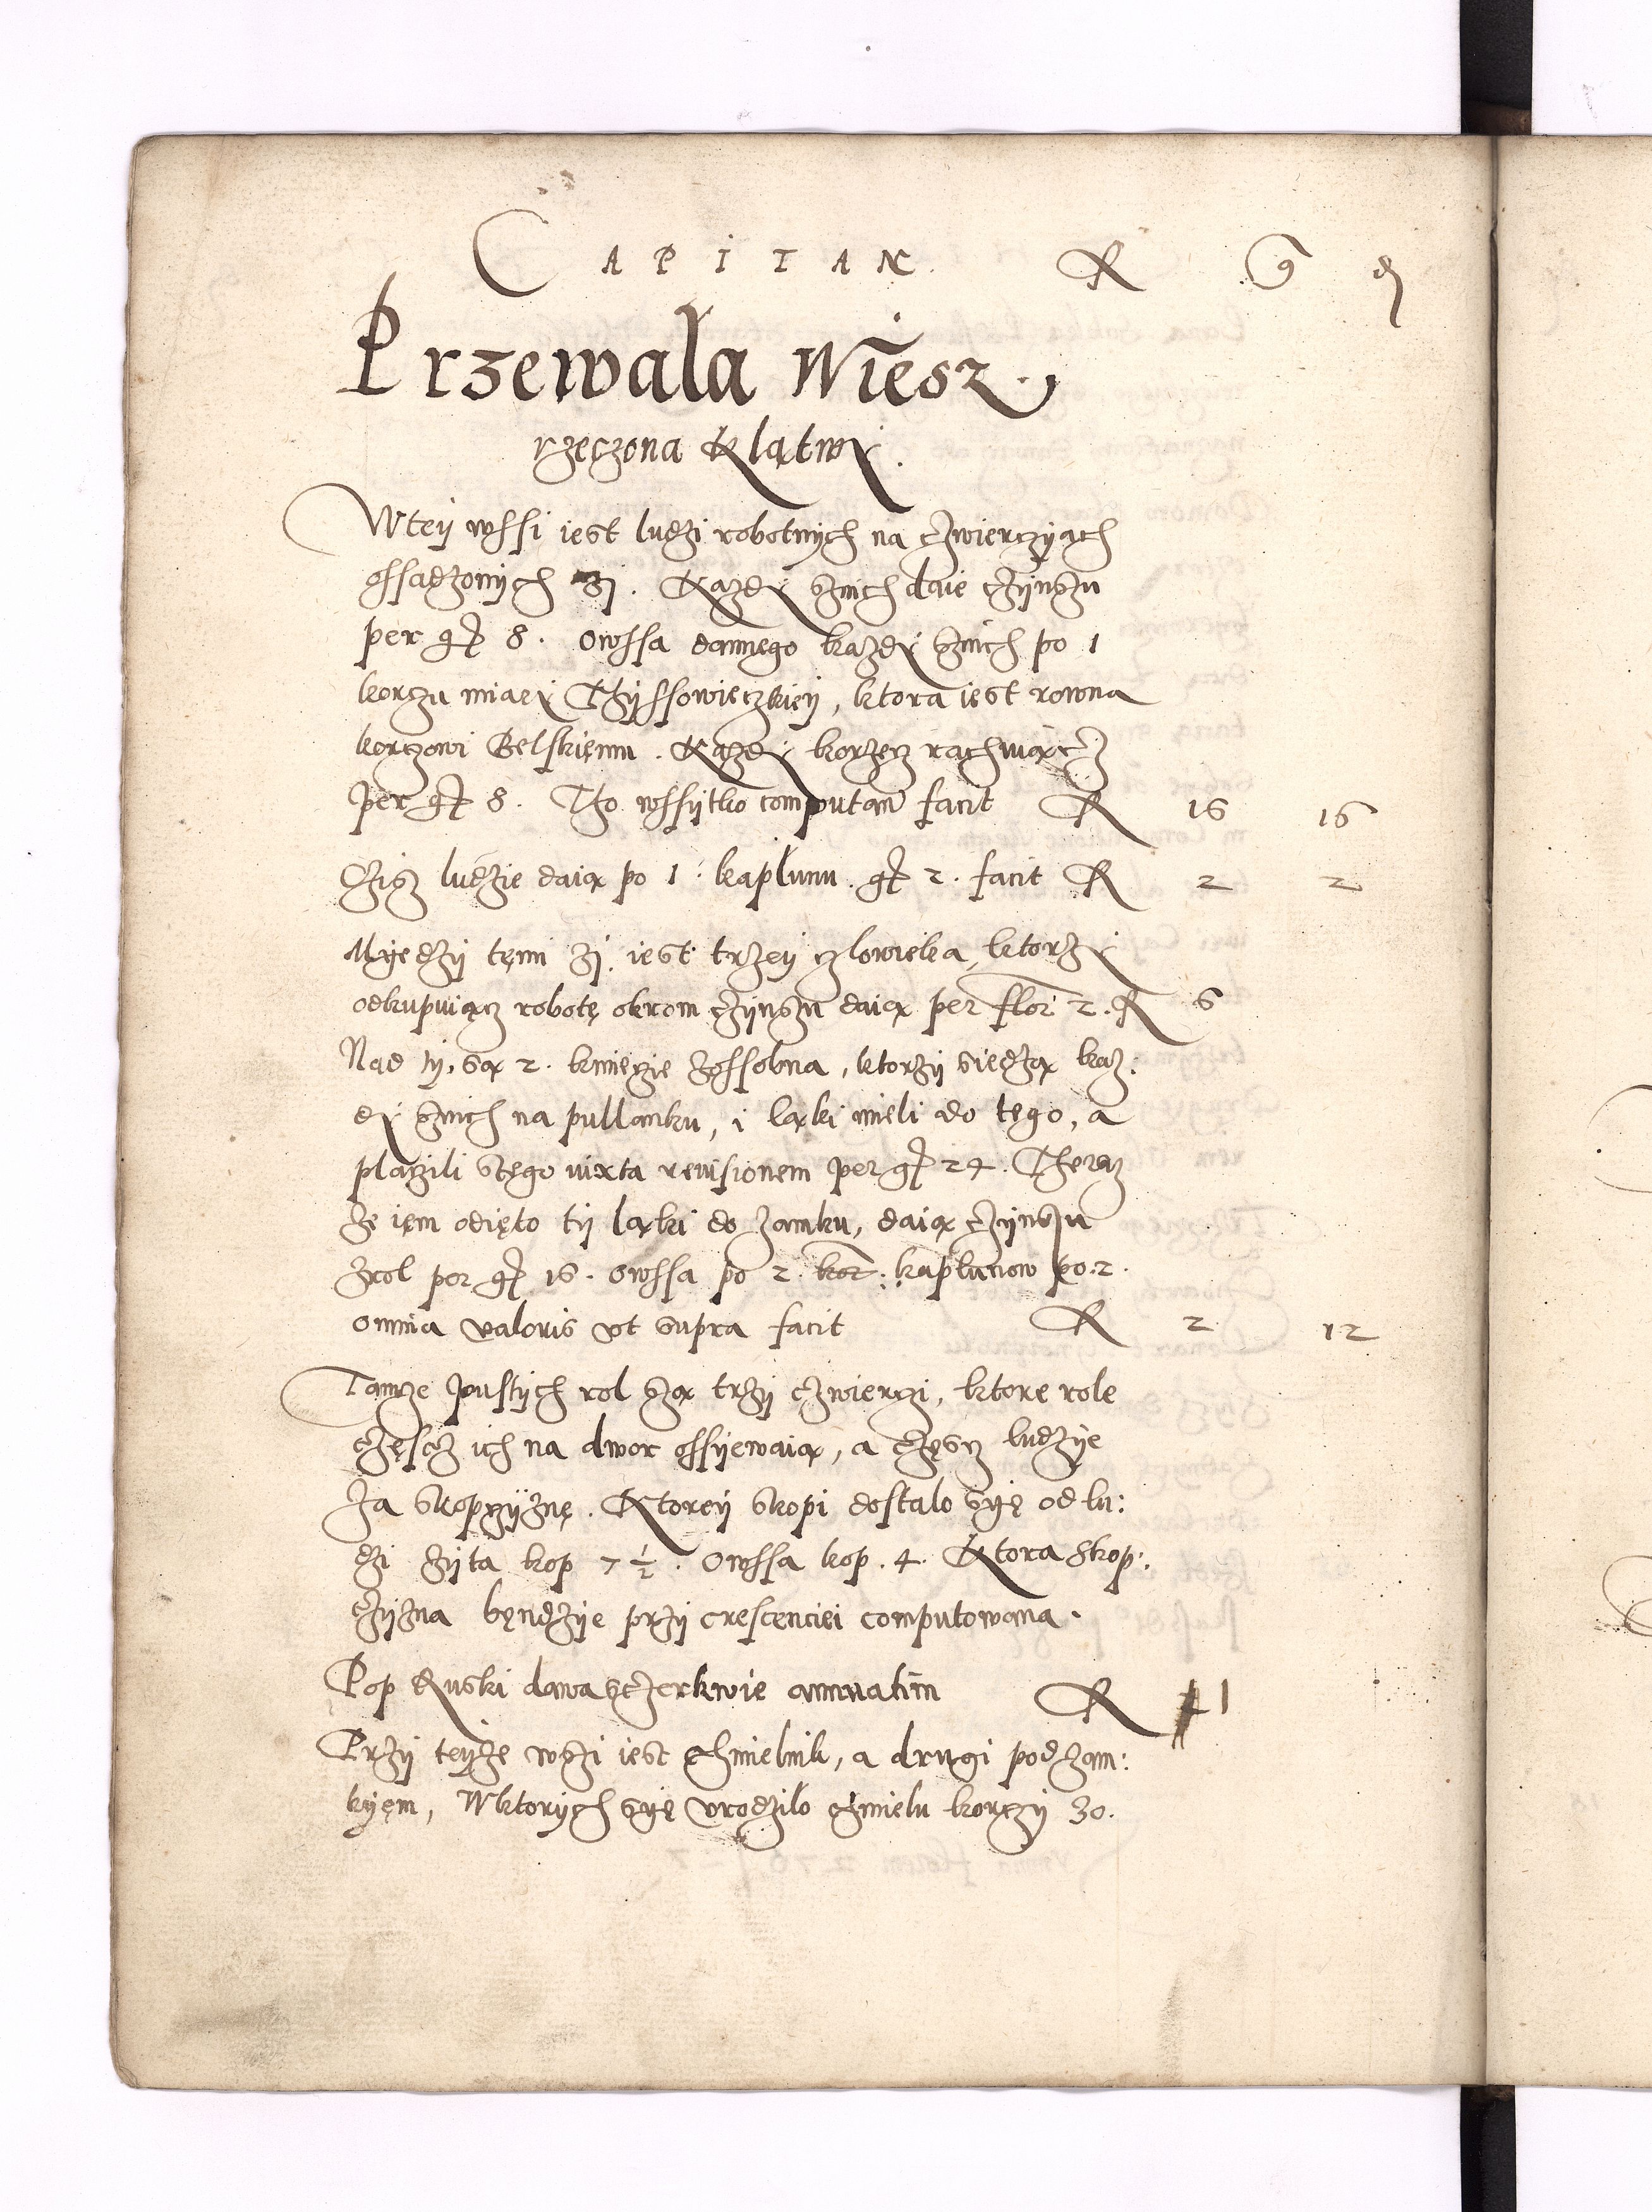 CAPITAN. R g d
Przewala Wiesz.
rzeczona Klątwy.
W tey wssi iest ludzi robotnych na czwierczyach
ossadzonych 31. Kazdy sznich daie czynszu
per gr 8. owssa dannego kazdy sznich po 1
korczu miary Thyssowieczkiey, ktora iest rowna
korczowi Belskięmu. Kazdy korzecz rachuiącz
per gr 8. Tho wssytko computan facit R 16 16
Czisz ludzie daią po 1. kaplunu. gr 2. facit R 2 2
Myedzy tęmi 31. iest trzey czlowieka, ktorzy
odkupuiącz robotę okrom czynszu daią per flor. 2. R 6
Nad ty, są 2. kmięcie zossobna, ktorzy siedzą kaz:
dy sznich na pullanku, i ląki mieli do tego, a
placzili stego iuxta reuisionem per gr 24. Theracz
ze ięm odięto ty ląki do zamku, daią czynszu
zrol per gr 16. owssa po 2. kor: kaplunow po. 2.
omnia valoris vt supra facit R 2 12
Tamze pustych rol szą trzy czwierczi, ktore role
częscz ich na dwor ossyewaią, a częscz ludzye
za skopczyznę. Ktorey skopi dostalo syę od lu:
dzi zyta kop 7 1/2. Owssa kop. 4. Ktora skop:
czyzna będzye przy crescenciei computowana.
Pop Ruski dawa sczerkwie annuatim R 1
Przy teyze wszi iest chmielnik, a drugi pod zam:
kyęm, W ktorych syę vrodzilo chmielu korczy 30.